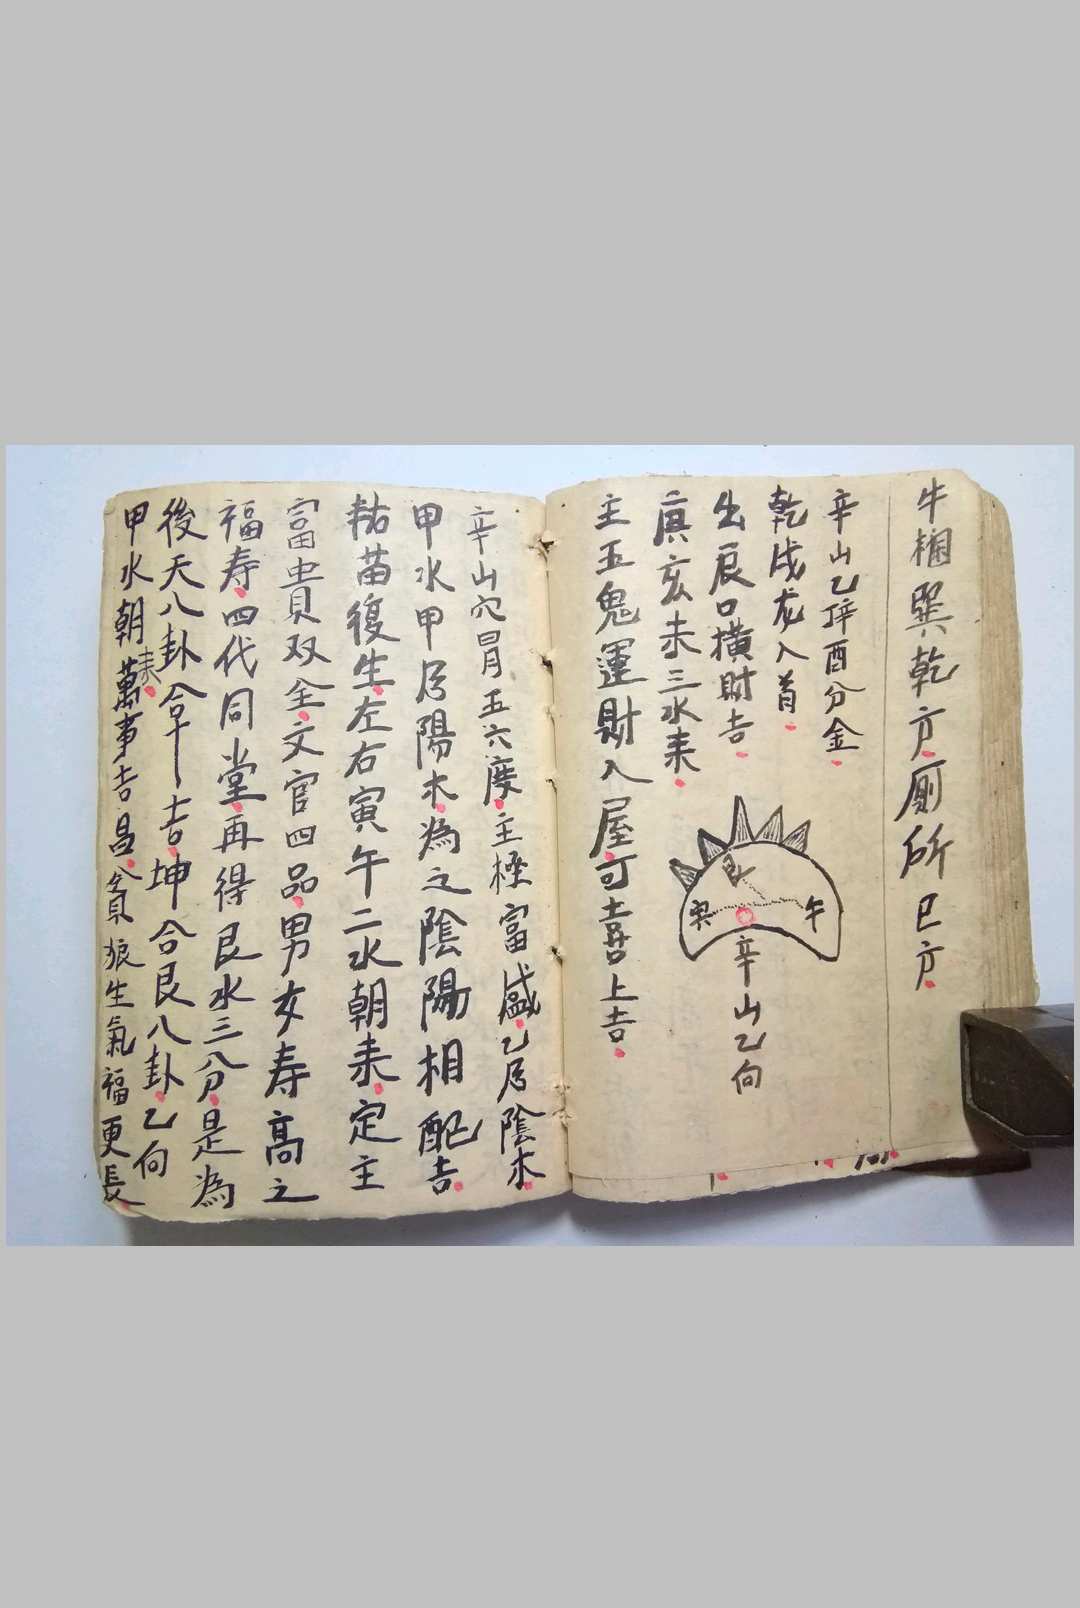 牛欄巽乾方厠所巳方
辛山乙 酉分金
乾戌龙入首
出辰口橫財吉
庚亥未三水来
主五鬼運財入屋可喜上吉
艮
寅
午
辛山乙向
辛山穴冐五六度主極富盛乙 陰木
甲水甲 陽木為之陰陽相配吉
枯苗復生左右寅午二水朝来定主
富貴双全文官四品男女寿高之
福寿四代同堂再得艮水三分是為
後天八卦合 吉坤合艮八卦乙向
甲水朝来萬事吉昌貪狼生氣福更長